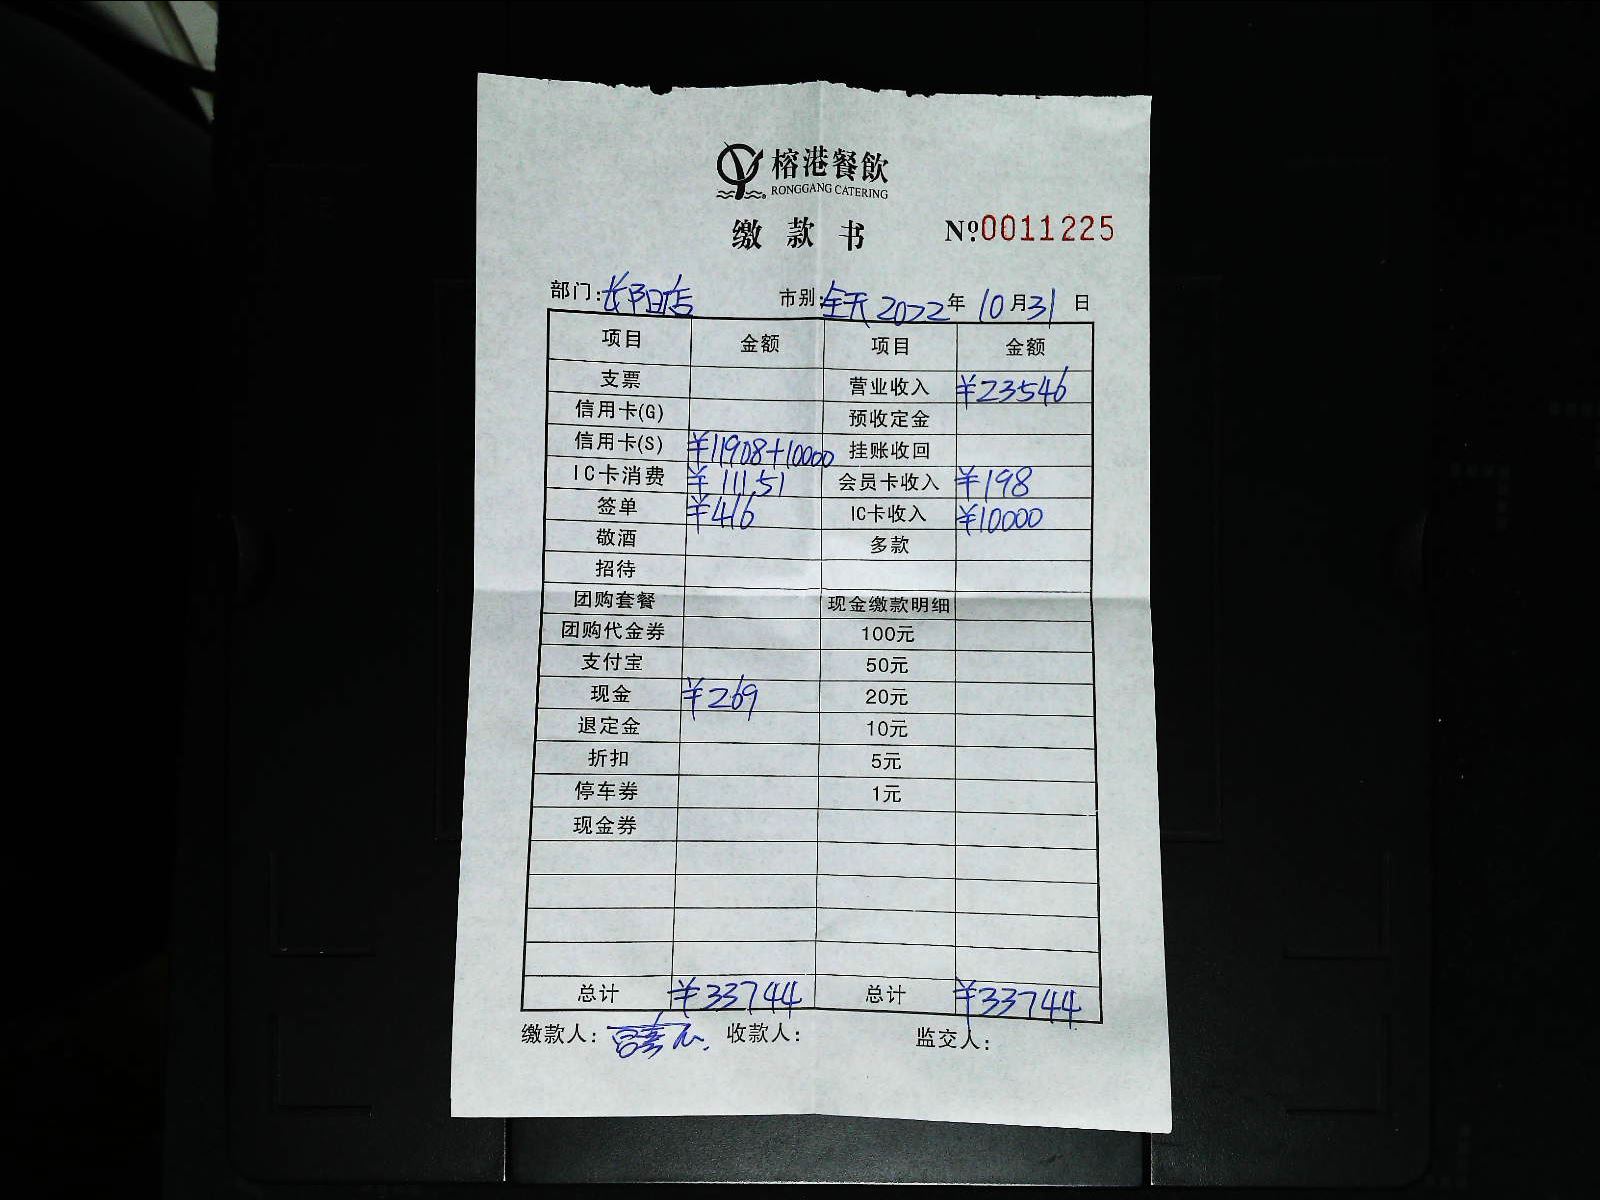 榕港餐飲
RONGGANG CATERING
缴款书 №0011225
部门:长阳店 市别:全天 2022年10月31日
项目 金额 项目 金额
支票 营业收入 ¥23546
信用卡(G) 预收定金
信用卡(S) ¥11908+10000 挂账收回
IC卡消费 ¥11151 会员卡收入 ¥198
签单 ¥416 IC卡收入 ¥10000
敬酒 多款
招待
团购套餐 现金缴款明细
团购代金券 100元
支付宝 50元
现金 ¥269 20元
退定金 10元
折扣 5元
停车券 1元
现金券
总计 ¥33744 总计 ¥33744
缴款人: 收款人: 监交人: